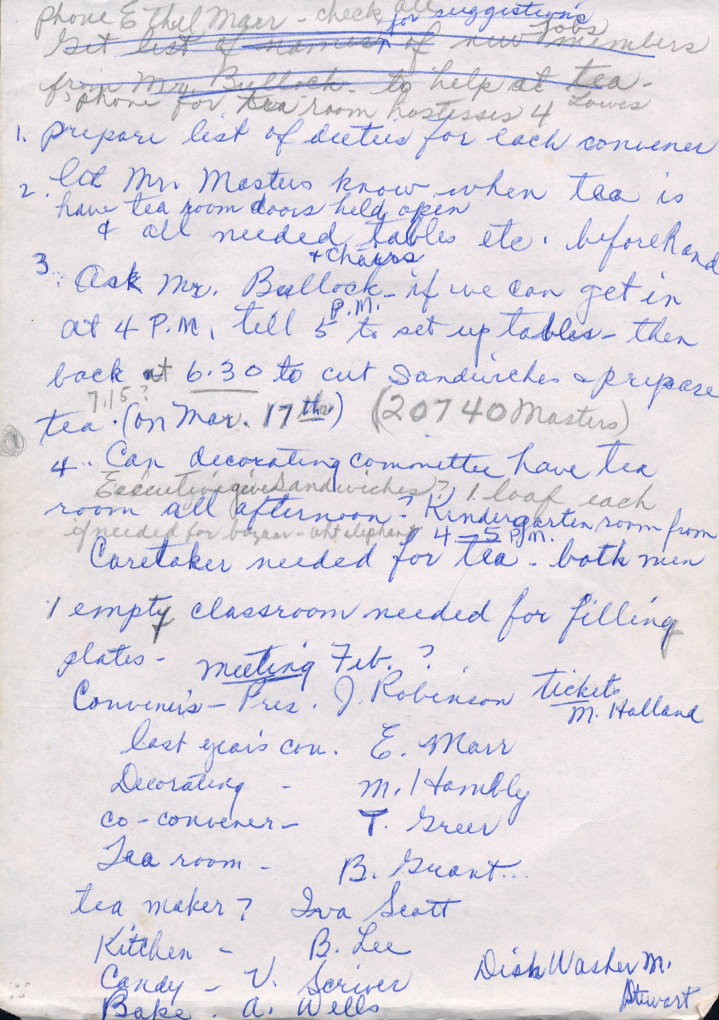 Phone Ethel Marr - check all
for suggestions
jobs
Get list of names of new members
from Mrs. Bullock - to help at tea -
phone for tea room hostesses 4 Lowes
1. prepare list of duties for each convener
2. let Mr. Masters know when tea is
have tea room doors held open
& all needed tables etc. beforehand
+ chairs
3. Ask Mr. Bullock - if we can get in
at 4 P.M. till 5 P.M. to set up tables - then
back at 6:30 to cut sandwiches & prepare
7:15?
tea. (on Mar. 17th) (20740 Masters)
4.. Can decorating committee have tea
Executive give Sandwiches? 1 loaf each
room all afternoon? Kindergarten room from
if needed for bazaar - wht elephant 4-5 P.M.
Caretaker needed for tea - both men
1 empty classroom needed for filling
plates - meeting Feb. ?
Convener's - Pres. J. Robinson tickets
M. Holland
last year's con. E. Marr
Decorating - M. Hambly
co-convener - T. Greer
Tea room - B. Grant..
tea maker? Iva Scott
Kitchen - B. Lee
Candy - V. Scriver
Dish Washer M.
Stewart
Bake. A. Wells